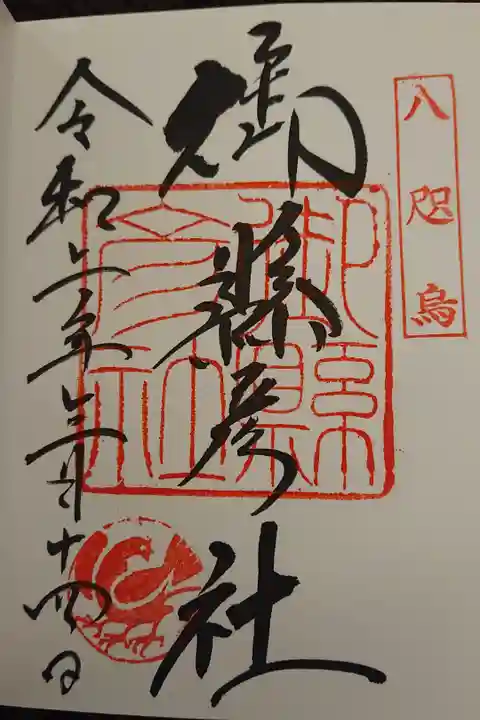 八咫烏
御縣彦社
御縣彦社
令和年月十四日